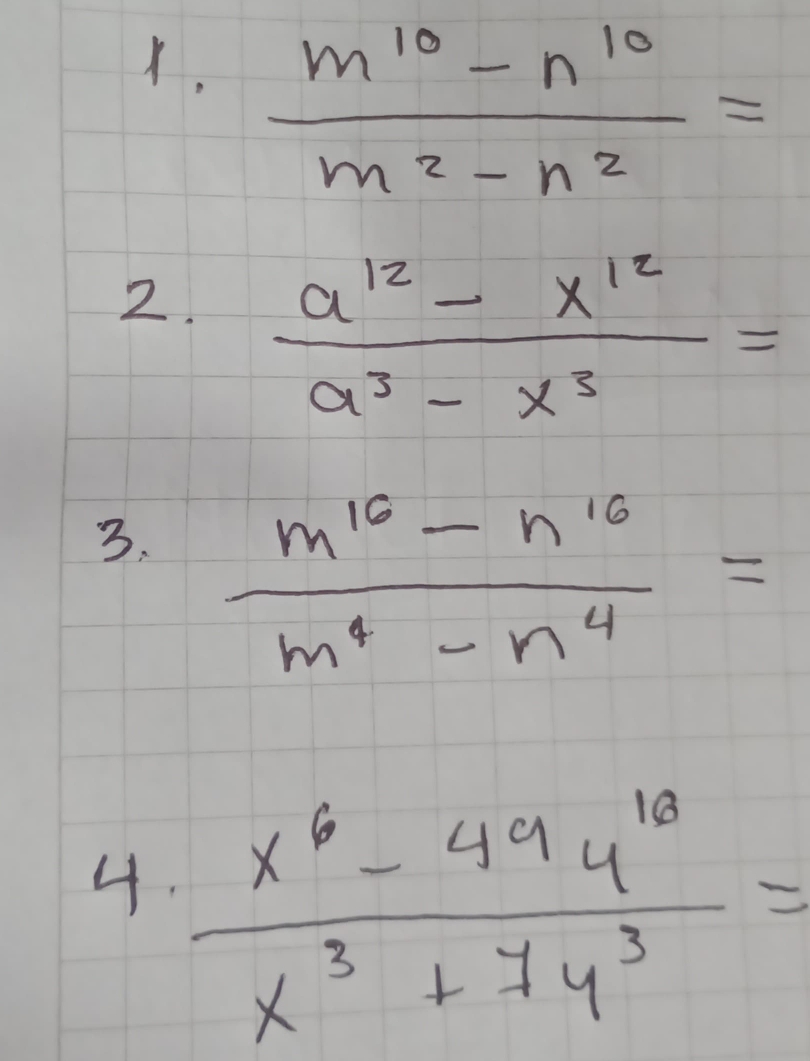 1. (m^10 - n^10) / (m^2 - n^2) =
2. (a^12 - x^12) / (a^3 - x^3) =
3. (m^16 - n^16) / (m^4 - n^4) =
4. (x^6 - 49y^10) / (x^3 + 7y^3) =